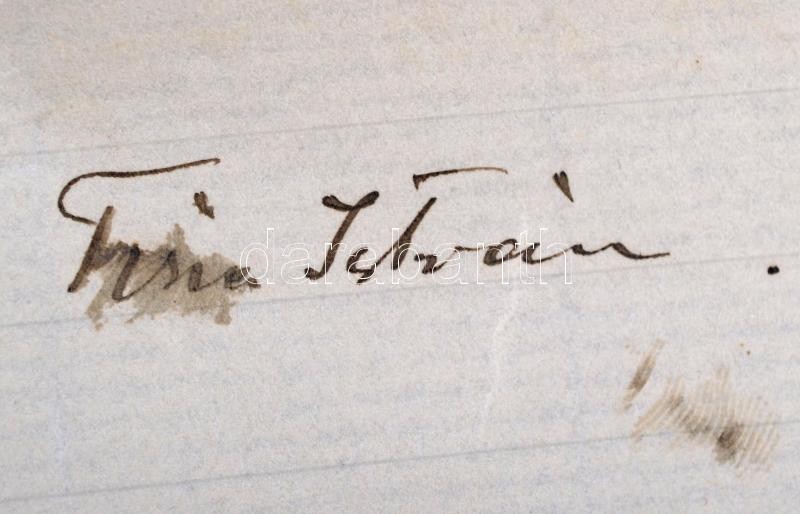 Tisza István
darabanth